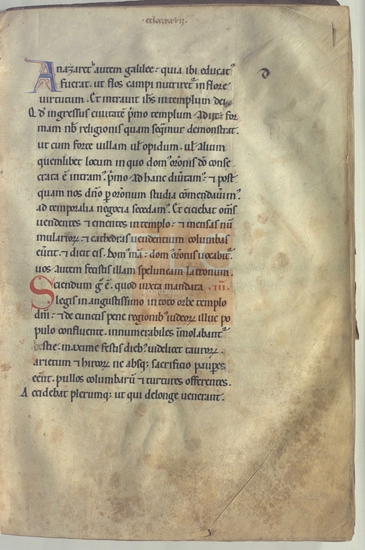 A nazareth autem galilee. quia ibi educat᷒
fuerat. ut flos campi nutriret in flore
uirtutum. Et intrauit ih̅s in templum dei.
Q d̅ ingressus ciuitatē p̅mo templum adiit. for
mam nb̅ religionis quam seq̅mur demonstrat.
ut cum forte uillam ul̅ opidum. ul̅ alium
quemlibet locum in quo dom᷒ or̅onis d̅o conse
crata ē intram᷒. p̅mo ad hanc diu̅tam᷒. ⁊ post
quam nos dn̅o p̅ or̅onum studia cōmendauim᷒.
ad temporalia negocia secedam᷒. Et eiciebat om̅s
uendentes ⁊ ementes in templo. ⁊ mensas nu̅
mularior̅. ⁊ cathedras uendentium columbas
euertit. ⁊ dicit eis. Dom᷒ mā. dom᷒ or̅onis uocabit᷒.
uos autem fecistis illam speluncam latronum.
S ciendum g̅ ē. quod iuxta mandata .III.
legis in angustissimo in toto orbe templo
dn̅i. ⁊ de cunctis pene regionib᷒ iudeor̅ illuc po
pulo confluente. innumerabiles īmolabant᷒
hostie. maxime festis dieb᷒. uidelicet tauror̅.
arietum ⁊ hircor̅. ne absq; sacrificio paup̅es
eēnt. pullos columbarū ⁊ turtures offerentes.
A ccidebat plerumq; ut qui de longe uenerant.